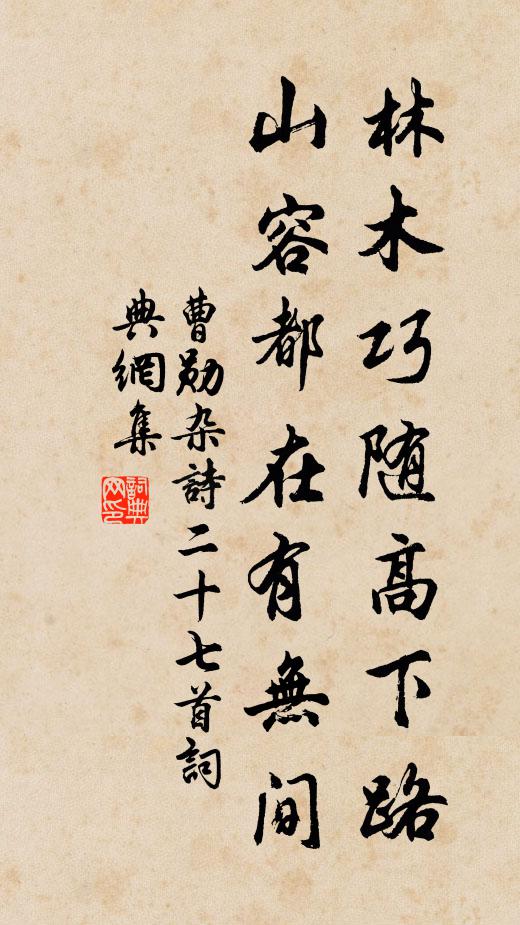 林木巧随高下路
山容都在有無间
曹勋杂詩二十七首詞
典網集
詞典网印